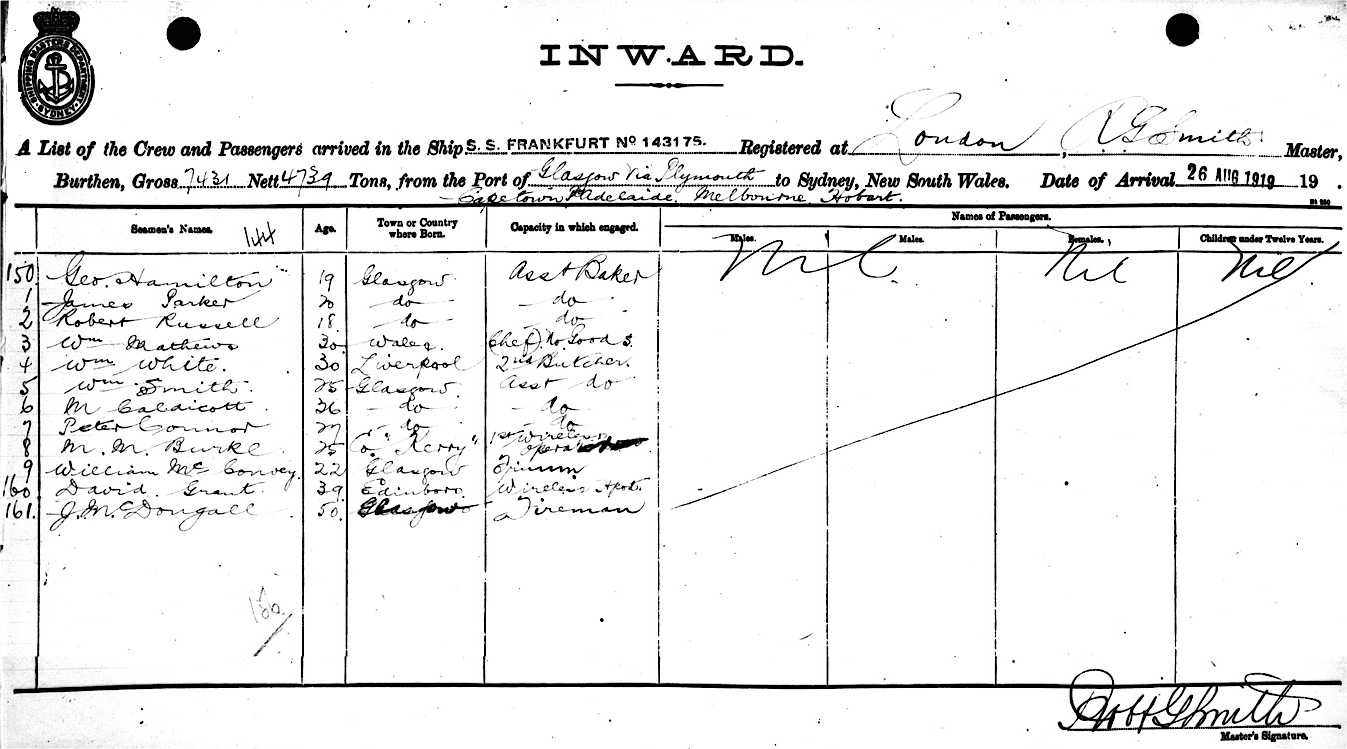 SHIPPING MASTERS DEPARTMENT SYDNEY
INWARD.
A List of the Crew and Passengers arrived in the Ship S. S. FRANKFURT No 143175. Registered at London, R G Smith Master,
Burthen, Gross 7431 Nett 4739 Tons, from the Port of Glasgow via Plymouth to Sydney, New South Wales. Date of Arrival 26 AUG 1919 19 .
Capetown Adelaide. Melbourne Hobart.
Seamen's Names. 144 Age. Town or Country where Born. Capacity in which engaged. Names of Passengers.
Males. Males. Females. Children under Twelve Years.
Nil Nil Nil
150 Geo. Hamilton 19 Glasgow Asst Baker
1 James Parker 20 do do
2 Robert Russell 18 do do
3 Wm Mathews 30 Wales. Chef
4 Wm White. 30 Liverpool 2nd Butcher.
5 Wm Smith 25 Glasgow Asst do
6 M Caldicott 36 do do
7 Peter Connor 27 do do
8 M. M. Burke 25 Co. "Kerry" 1st Wireless
9 William McConvey. 22 Glasgow
160 David Grant. 39 Edinboro Wireless
161. J. McDougall 50 Glasgow Fireman
Robt G Smith
Master's Signature.